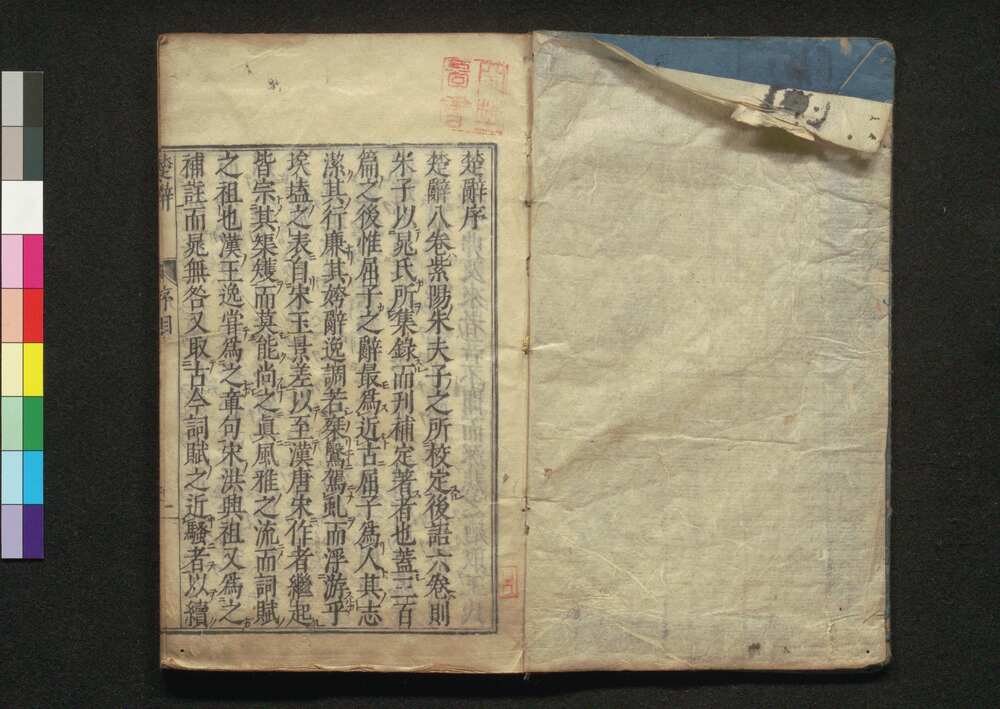 楚辭序
楚辭八卷紫陽朱夫子之所校定後語六卷則
朱子以晁氏所集錄而刋補定著者也蓋三百
篇之後惟屈子之辭最爲近古屈子爲人其志
潔其行廉其姱辭逸調若乗鷖駕虬而浮游乎
埃壒之表自宋玉景差以至漢唐宋作者繼起
皆宗其榘矱而莫能尚之眞風雅之流而詞賦
之祖也漢王逸甞爲之章句宋洪興祖又爲之
補註而晁無咎又取古今詞賦之近騷者以續
楚辭
序目